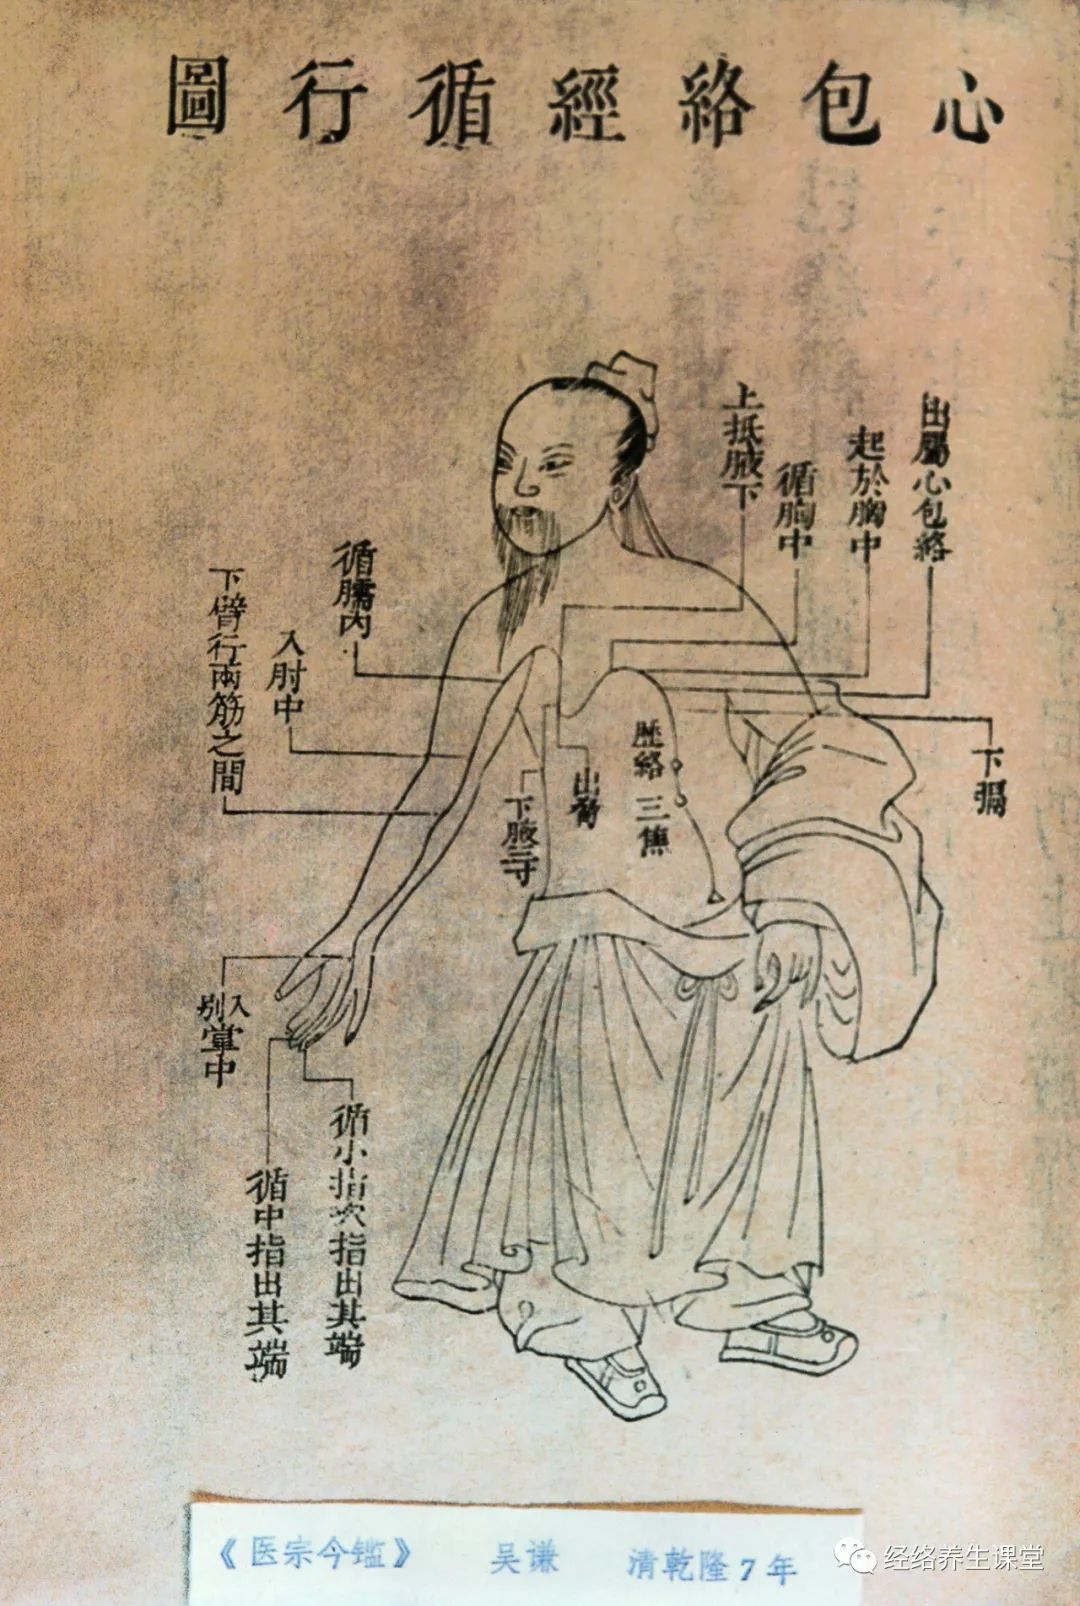 心包絡經循行圖
出屬心包絡
起於胸中
循胸中
上抵腋下
下膈
歷絡三焦
出脅
下腋三寸
循臑內
入肘中
下臂行兩筋之間
入掌中
別
循小指次指出其端
循中指出其端
《医宗今鑑》 吴谦 清乾隆7年
经络养生课堂